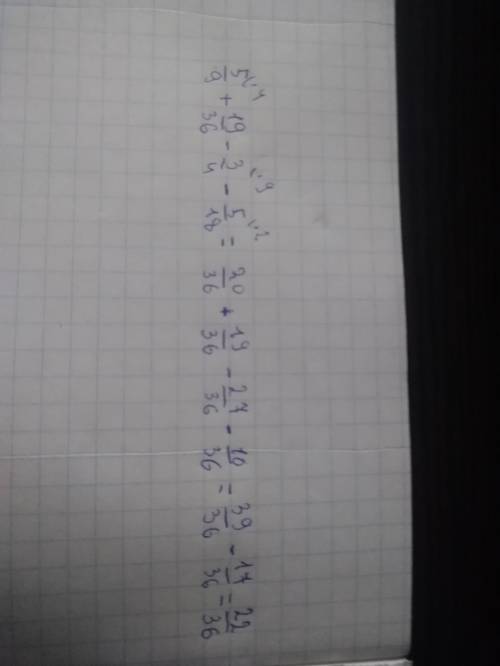 5\4/9 + 19/36 - 3\9/4 - 5\2/18 = 20/36 + 19/36 - 27/36 - 10/36 = 39/36 - 17/36 = 22/36